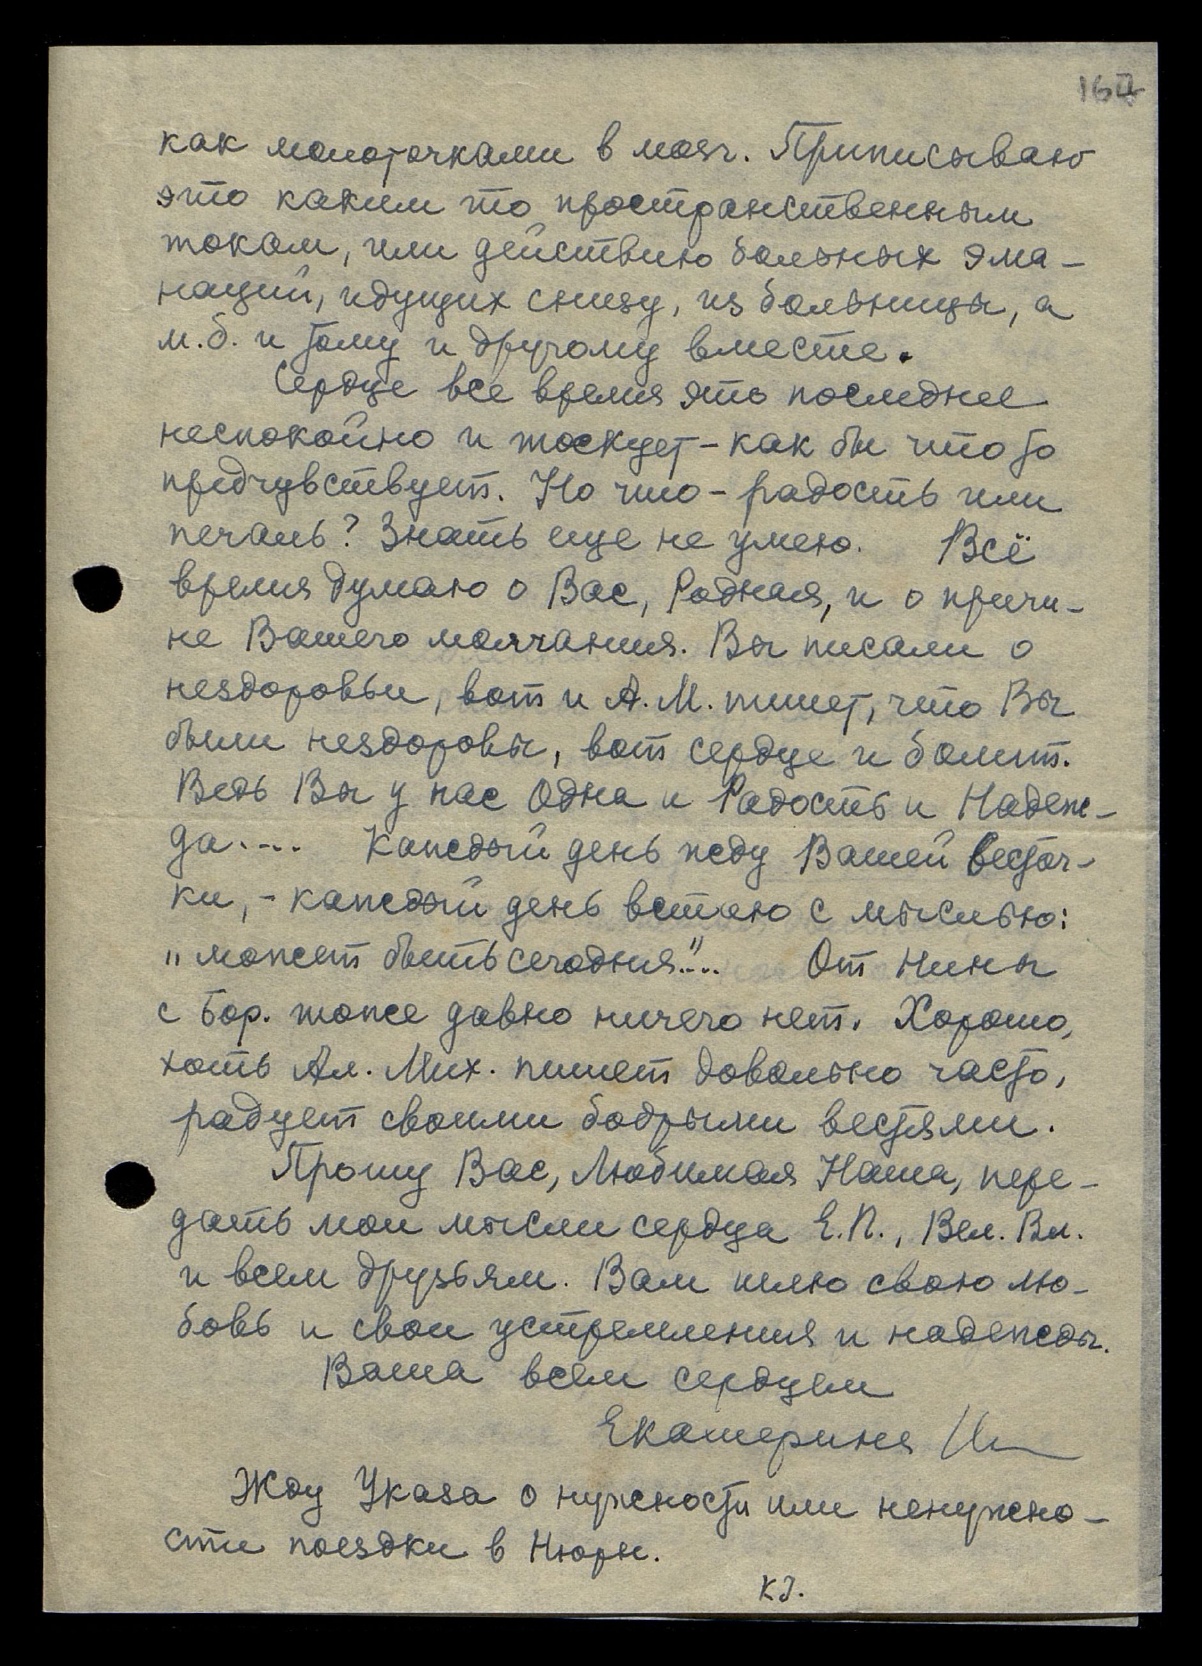 167
как молоточками в мозг. Приписываю
это каким то пространственным
токам, или действию больных эма-
наций, идущих снизу, из больницы, а
м.б. и тому и другому вместе.
Сердце все время это последнее
неспокойно и тоскует - как бы что то
предчувствует. Но что - радость или
печаль? Знать еще не умею. Всё
время думаю о Вас, Родная, и о причи-
не Вашего молчания. Вы писали о
нездоровьи, вот и А.М. пишет, что Вы
были нездоровы, вот сердце и болит.
Ведь Вы у нас Одна и Радость и Надеж-
да.... Каждый день жду Вашей весточ-
ки, - каждый день встаю с мыслью:
„может быть сегодня"... От Нины
с Бор. тоже давно ничего нет. Хорошо,
хоть Ал. Мих. пишет довольно часто,
радует своими бодрыми вестями.
Прошу Вас, Любимая Наша, пере-
дать мои мысли сердца Е.П., Вел. Вл.
и всем друзьям. Вам шлю свою лю-
бовь и свои устремления и надежды.
Ваша всем сердцем
Екатерина
Жду Указа о нужности или ненужно-
сти поездки в Нюрн.